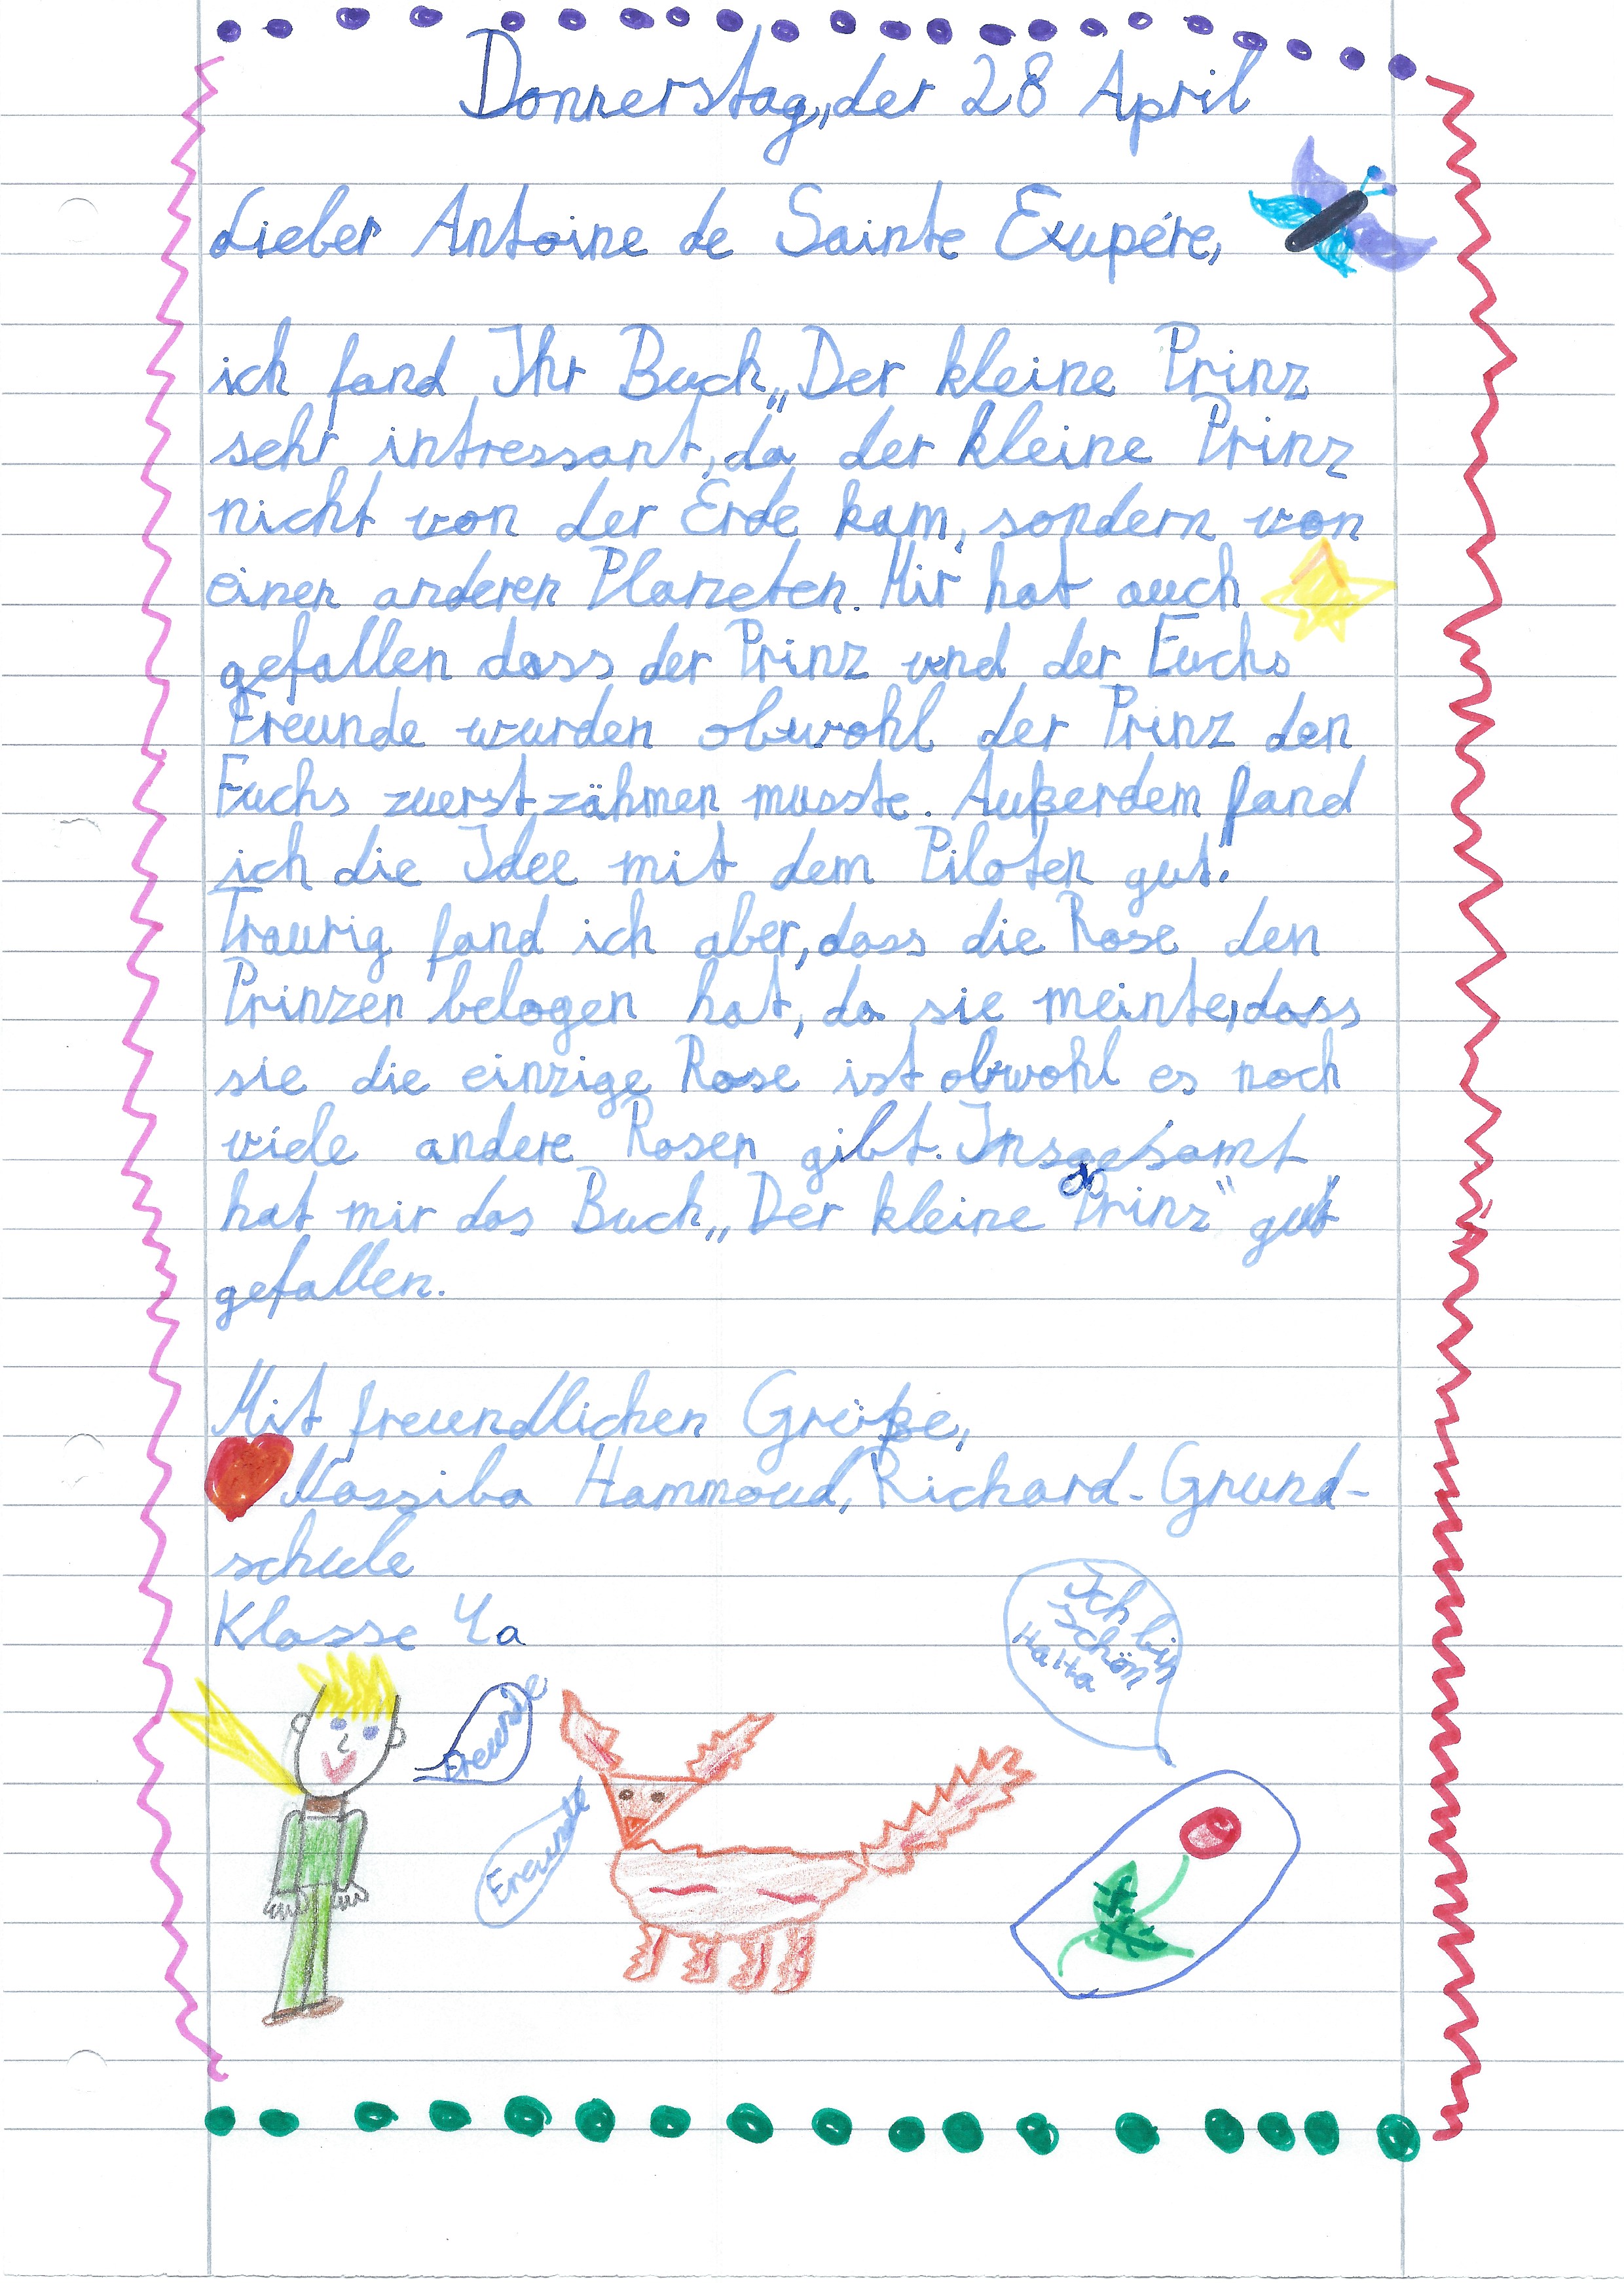 Donnerstag, der 28 April
Lieber Antoine de Sainte Exupére,
ich fand Ihr Buch „Der kleine Prinz
sehr intressant, da der kleine Prinz
nicht von der Erde kam, sondern von
einen anderen Planeten. Mir hat auch
gefallen dass der Prinz und der Fuchs
Freunde wurden obwohl der Prinz den
Fuchs zuerst zähmen musste. Außerdem fand
ich die Idee mit dem Piloten gut.
Traurig fand ich aber, dass die Rose den
Prinzen belogen hat, da sie meinte, dass
sie die einzige Rose ist obwohl es noch
viele andere Rosen gibt. Insgesamt
hat mir das Buch „Der kleine Prinz“ gut
gefallen.
Mit freundlichen Grüße,
Nassiba Hammoud, Richard-Grund-
schule
Klasse 4a
Ich bin
Schön
Haha
Freunde
Freunde